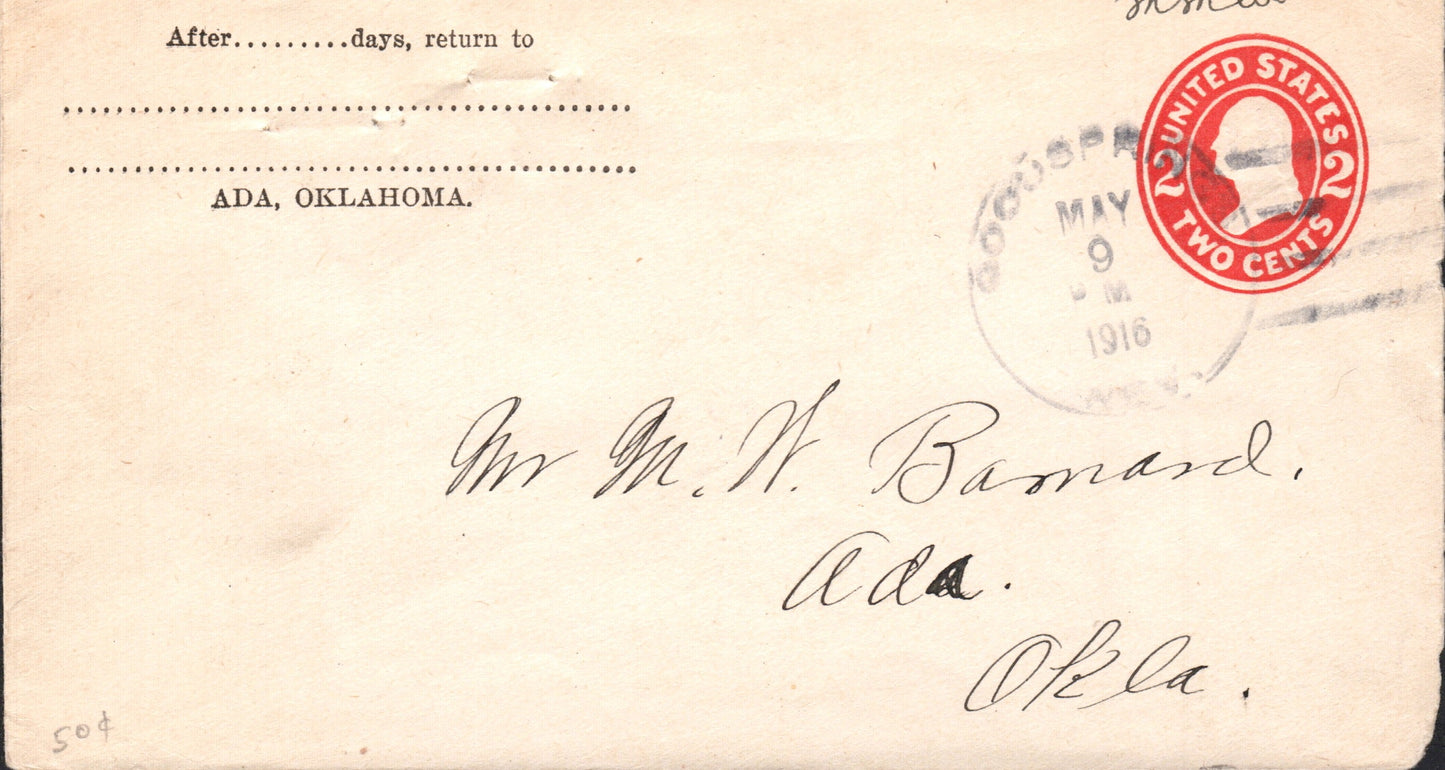 After.........days, return to
ADA, OKLAHOMA.
UNITED STATES
2 2
TWO CENTS
GOODSPRINGS
MAY
9
M
1916
NEV.
Mr M. W. Barnard.
Ada.
Okla.
50¢